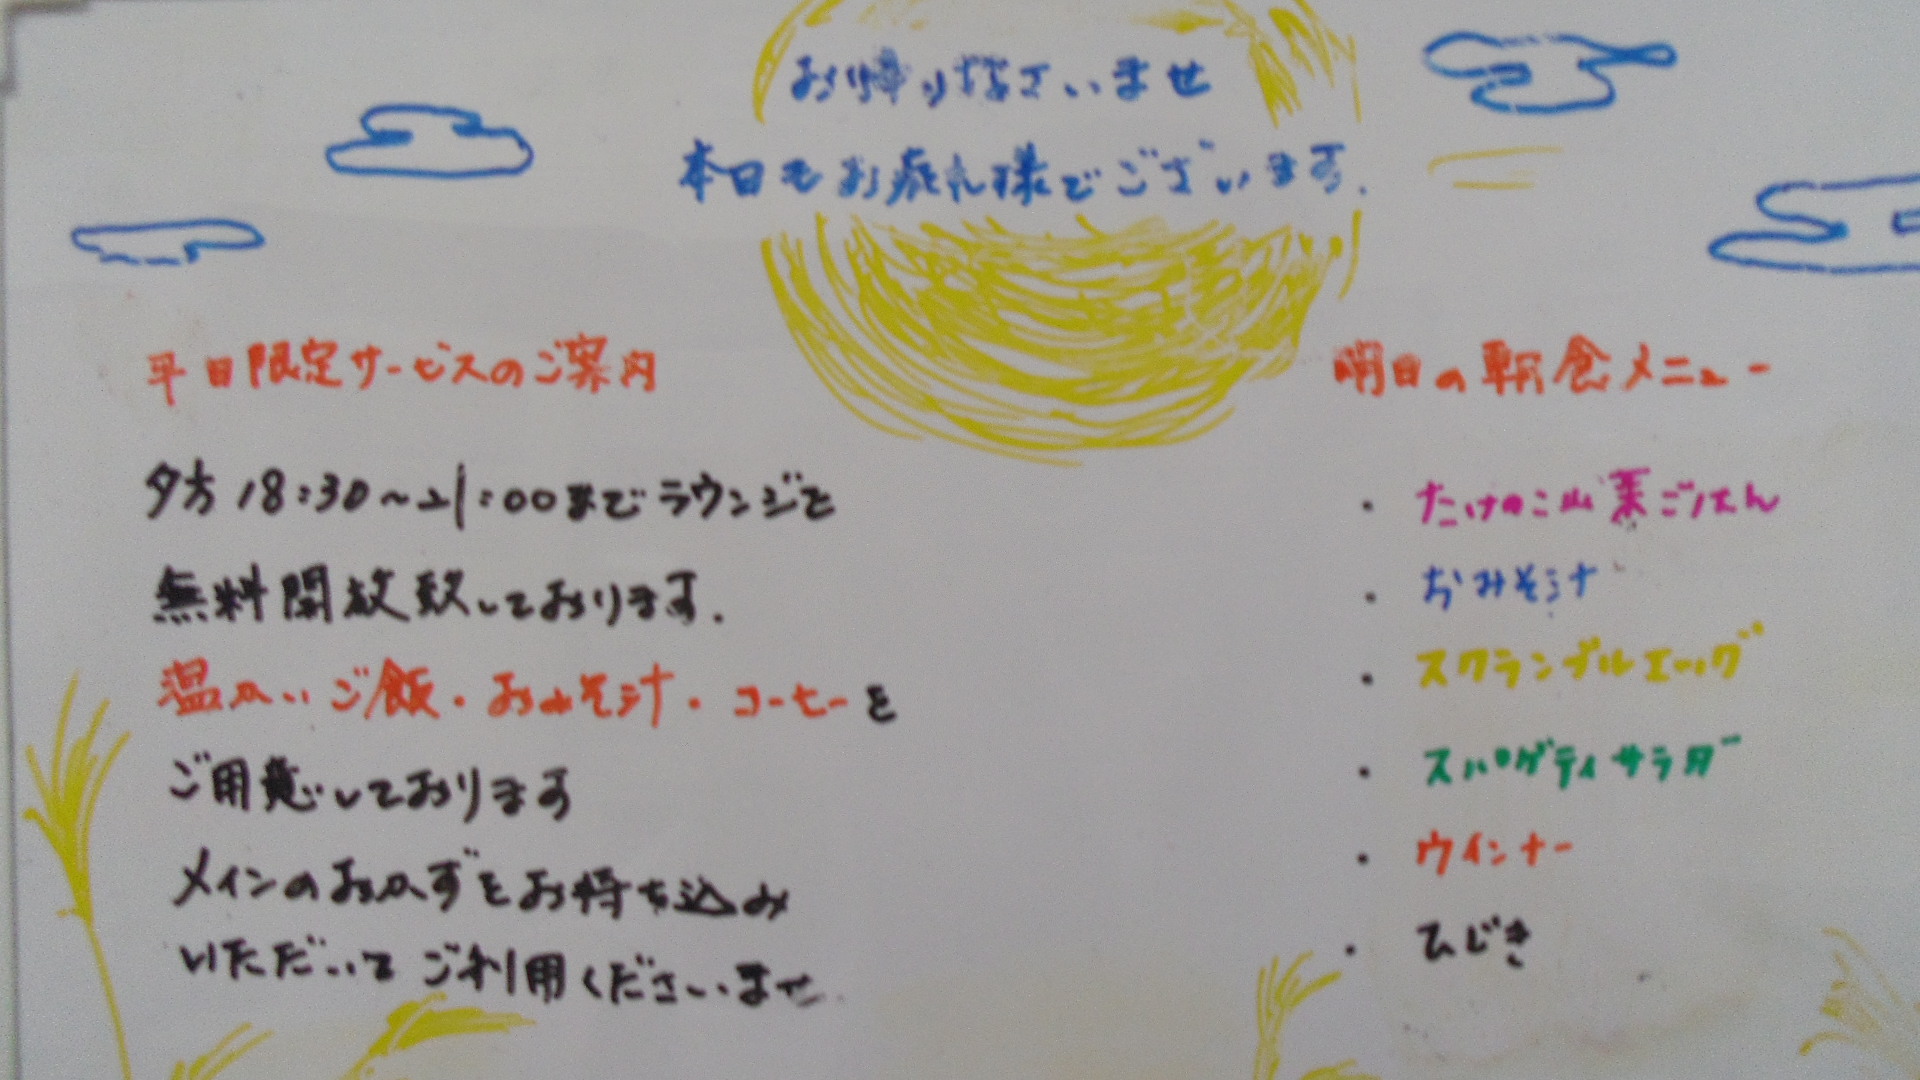 お帰りなさいませ
本日もお疲れ様でございます.
平日限定サービスのご案内
夕方 18:30～21:00までラウンジを
無料開放致しております.
温かいご飯・おみそ汁・コーヒーを
ご用意しております
メインのおかずをお持ち込み
いただいてご利用くださいませ.
明日の朝食メニュー
・たけのこ山菜ごはん
・おみそ汁
・スクランブルエッグ
・スパゲティサラダ
・ウインナー
・ひじき